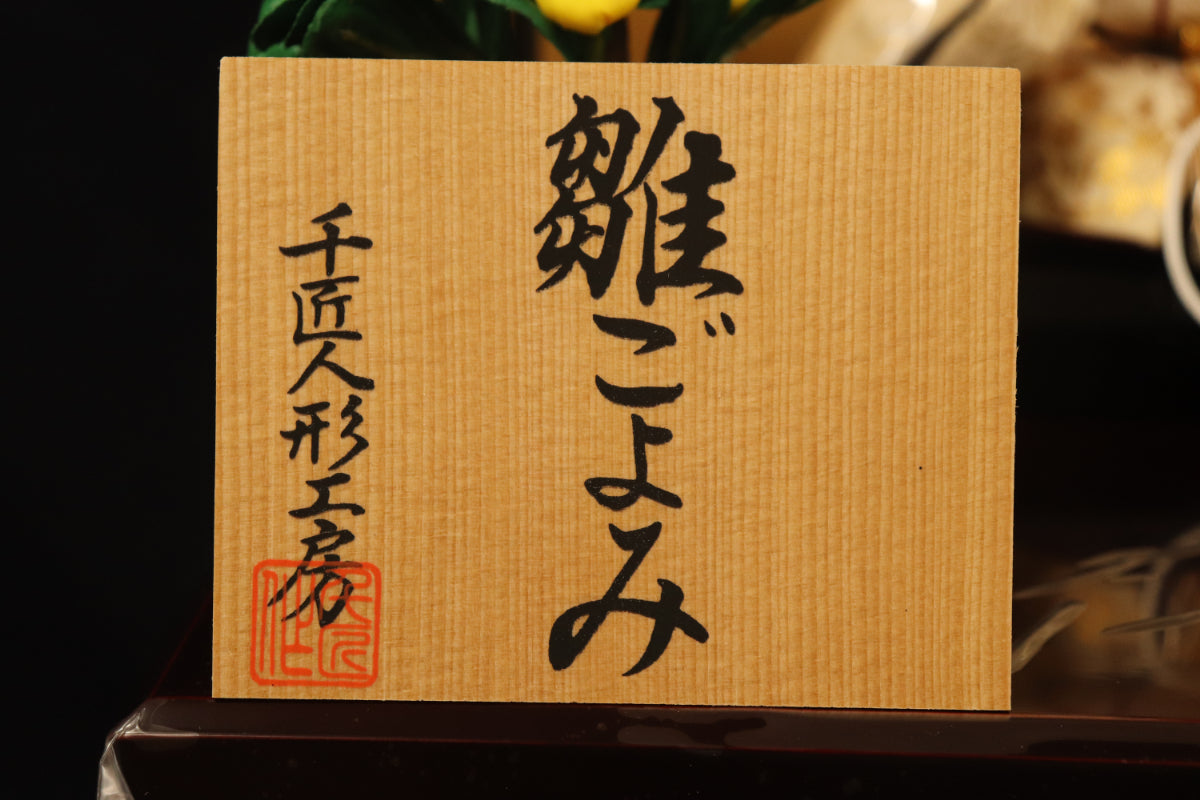 雛ごよみ
千匠人形工房